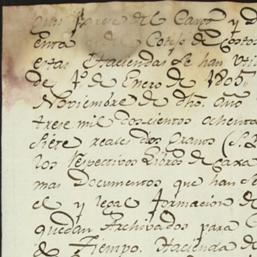 de Caxa y D
de Costos
estas Haciendas se han
de 1º de Enero de 1805
Noviembre de dho. Año
trese mil Doscientos ochenta
Siete reales dos Granos
los respectivos Libro de Caxa
mas Documentos, que han Se
el y legal formacion de
quedan Archivados para
Tiempo. Hacienda de